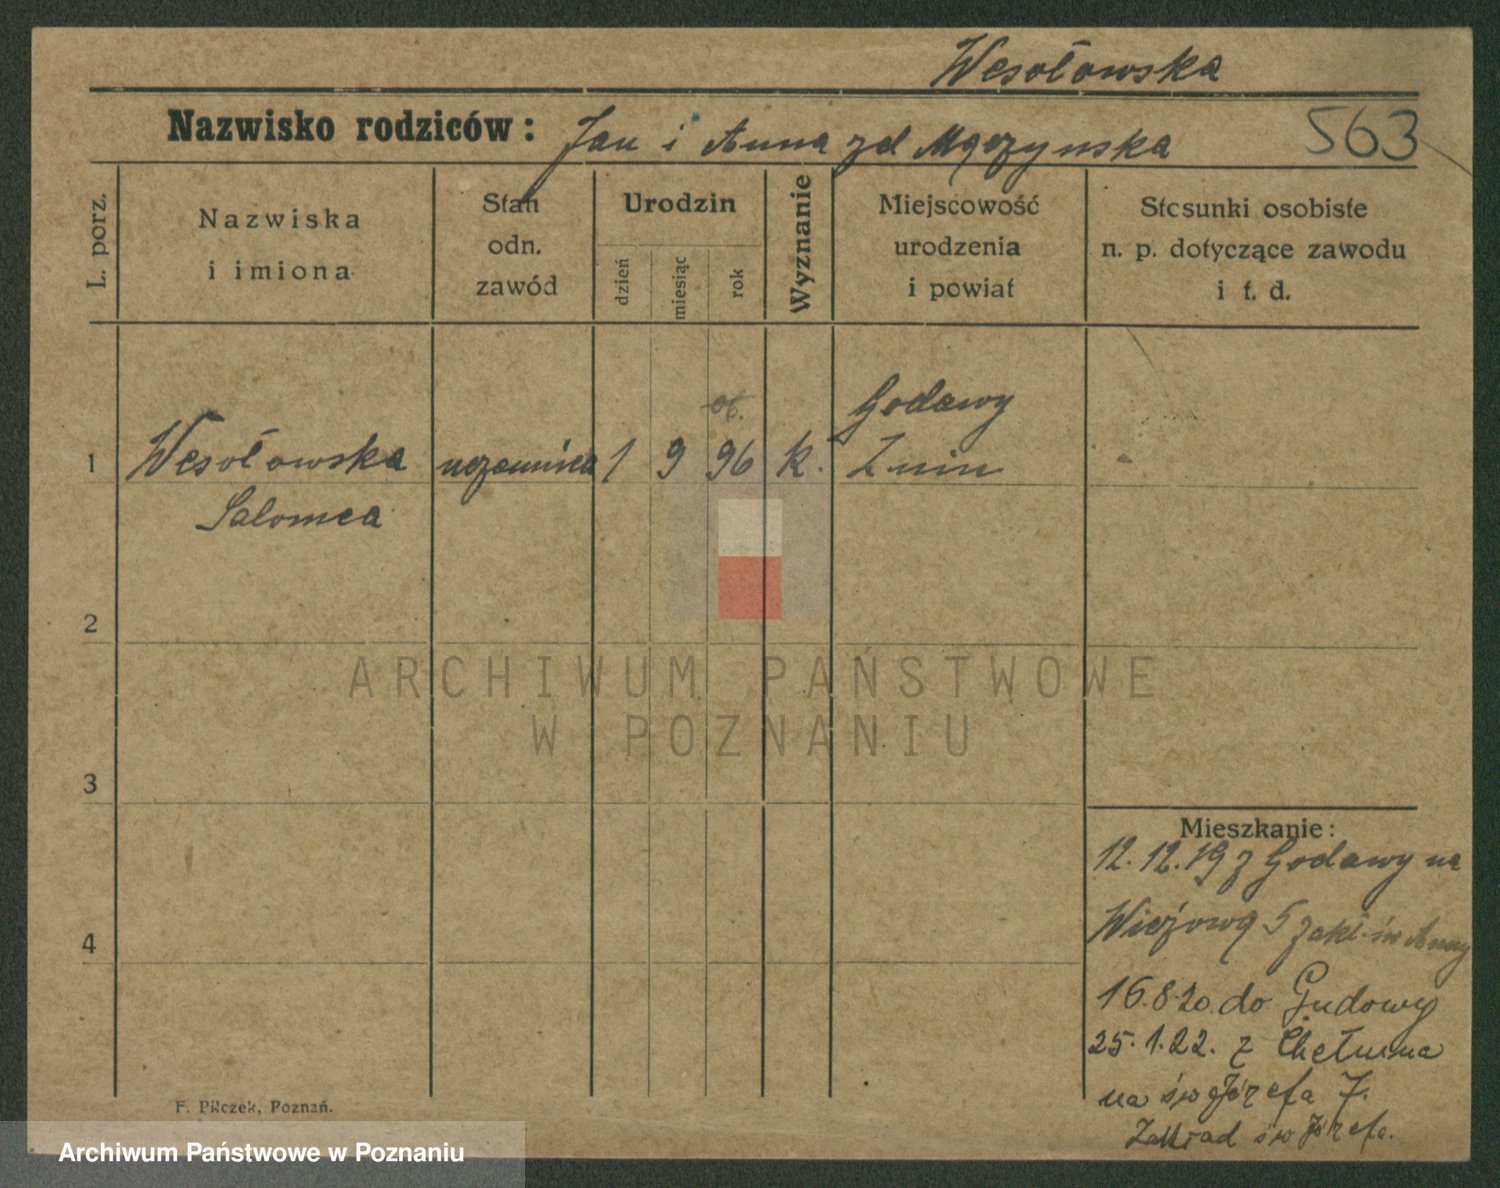 Wesołowska
Nazwisko rodziców: Jan i Anna zd Mączynska 563
L. porz.
Nazwiska
i imiona
Stan
odn.
zawód
Urodzin
dzień
miesiąc
rok
Wyznanie
Miejscowość
urodzenia
i powiat
Stosunki osobiste
n. p. dotyczące zawodu
i t. d.
1 Wesołowska uczennica 1 9 96 k. Godawy
Salomea Znin
2
3
4
Mieszkanie:
12.12.19 z Godawy na
Wieżową 5 zakł. św Anny
16.8.20. do Gudowy
25.1.22. z Chełmna
na św Józefa 7.
Zakład św Józefa.
F. Pilczek, Poznań.
ARCHIWUM PAŃSTWOWE
W POZNANIU
Archiwum Państwowe w Poznaniu